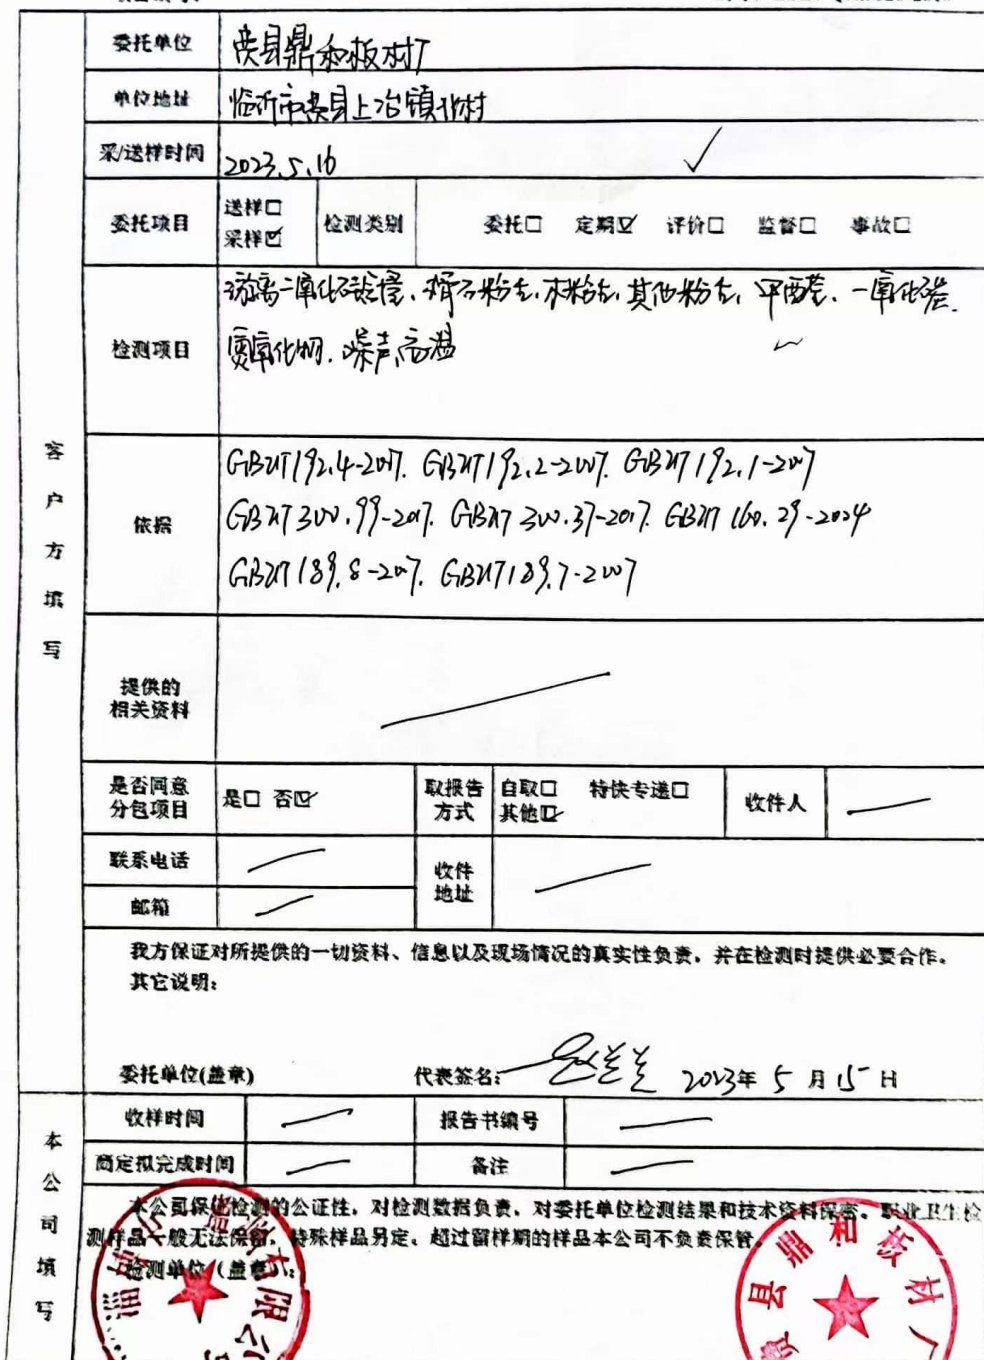 委托单位 费县鼎和板材厂
单位地址 临沂市费县上冶镇北村
采/送样时间 2023.5.16
委托项目 送样□ 采样☑ 检测类别 委托□ 定期☑ 评价□ 监督□ 事故□
检测项目 游离二氧化硅含量、滑石粉尘、木粉尘、其他粉尘、甲醛、一氧化碳、
氮氧化物、噪声、高温
客户方填写
依据 GBZ/T192.4-2007. GBZ/T192.2-2007. GBZ/T192.1-2007
GBZ/T300.99-2017. GBZ/T300.37-2017. GBZ/T160.29-2004
GBZ/T189.8-2007. GBZ/T189.7-2007
提供的
相关资料
是否同意
分包项目 是□ 否☑ 取报告
方式 自取□ 特快专递□
其他☑ 收件人
联系电话 收件
地址
邮箱
我方保证对所提供的一切资料、信息以及现场情况的真实性负责，并在检测时提供必要合作。
其它说明：
委托单位(盖章) 代表签名： 2023年5月15日
本公司填写
收样时间 报告书编号
商定拟完成时间 备注
本公司保证检测的公证性，对检测数据负责，对委托单位检测结果和技术资料保密。职业卫生检
测样品一般无法保留，特殊样品另定，超过留样期的样品本公司不负责保管。
检测单位（盖章）：
淄 有限公
费县鼎和板材厂